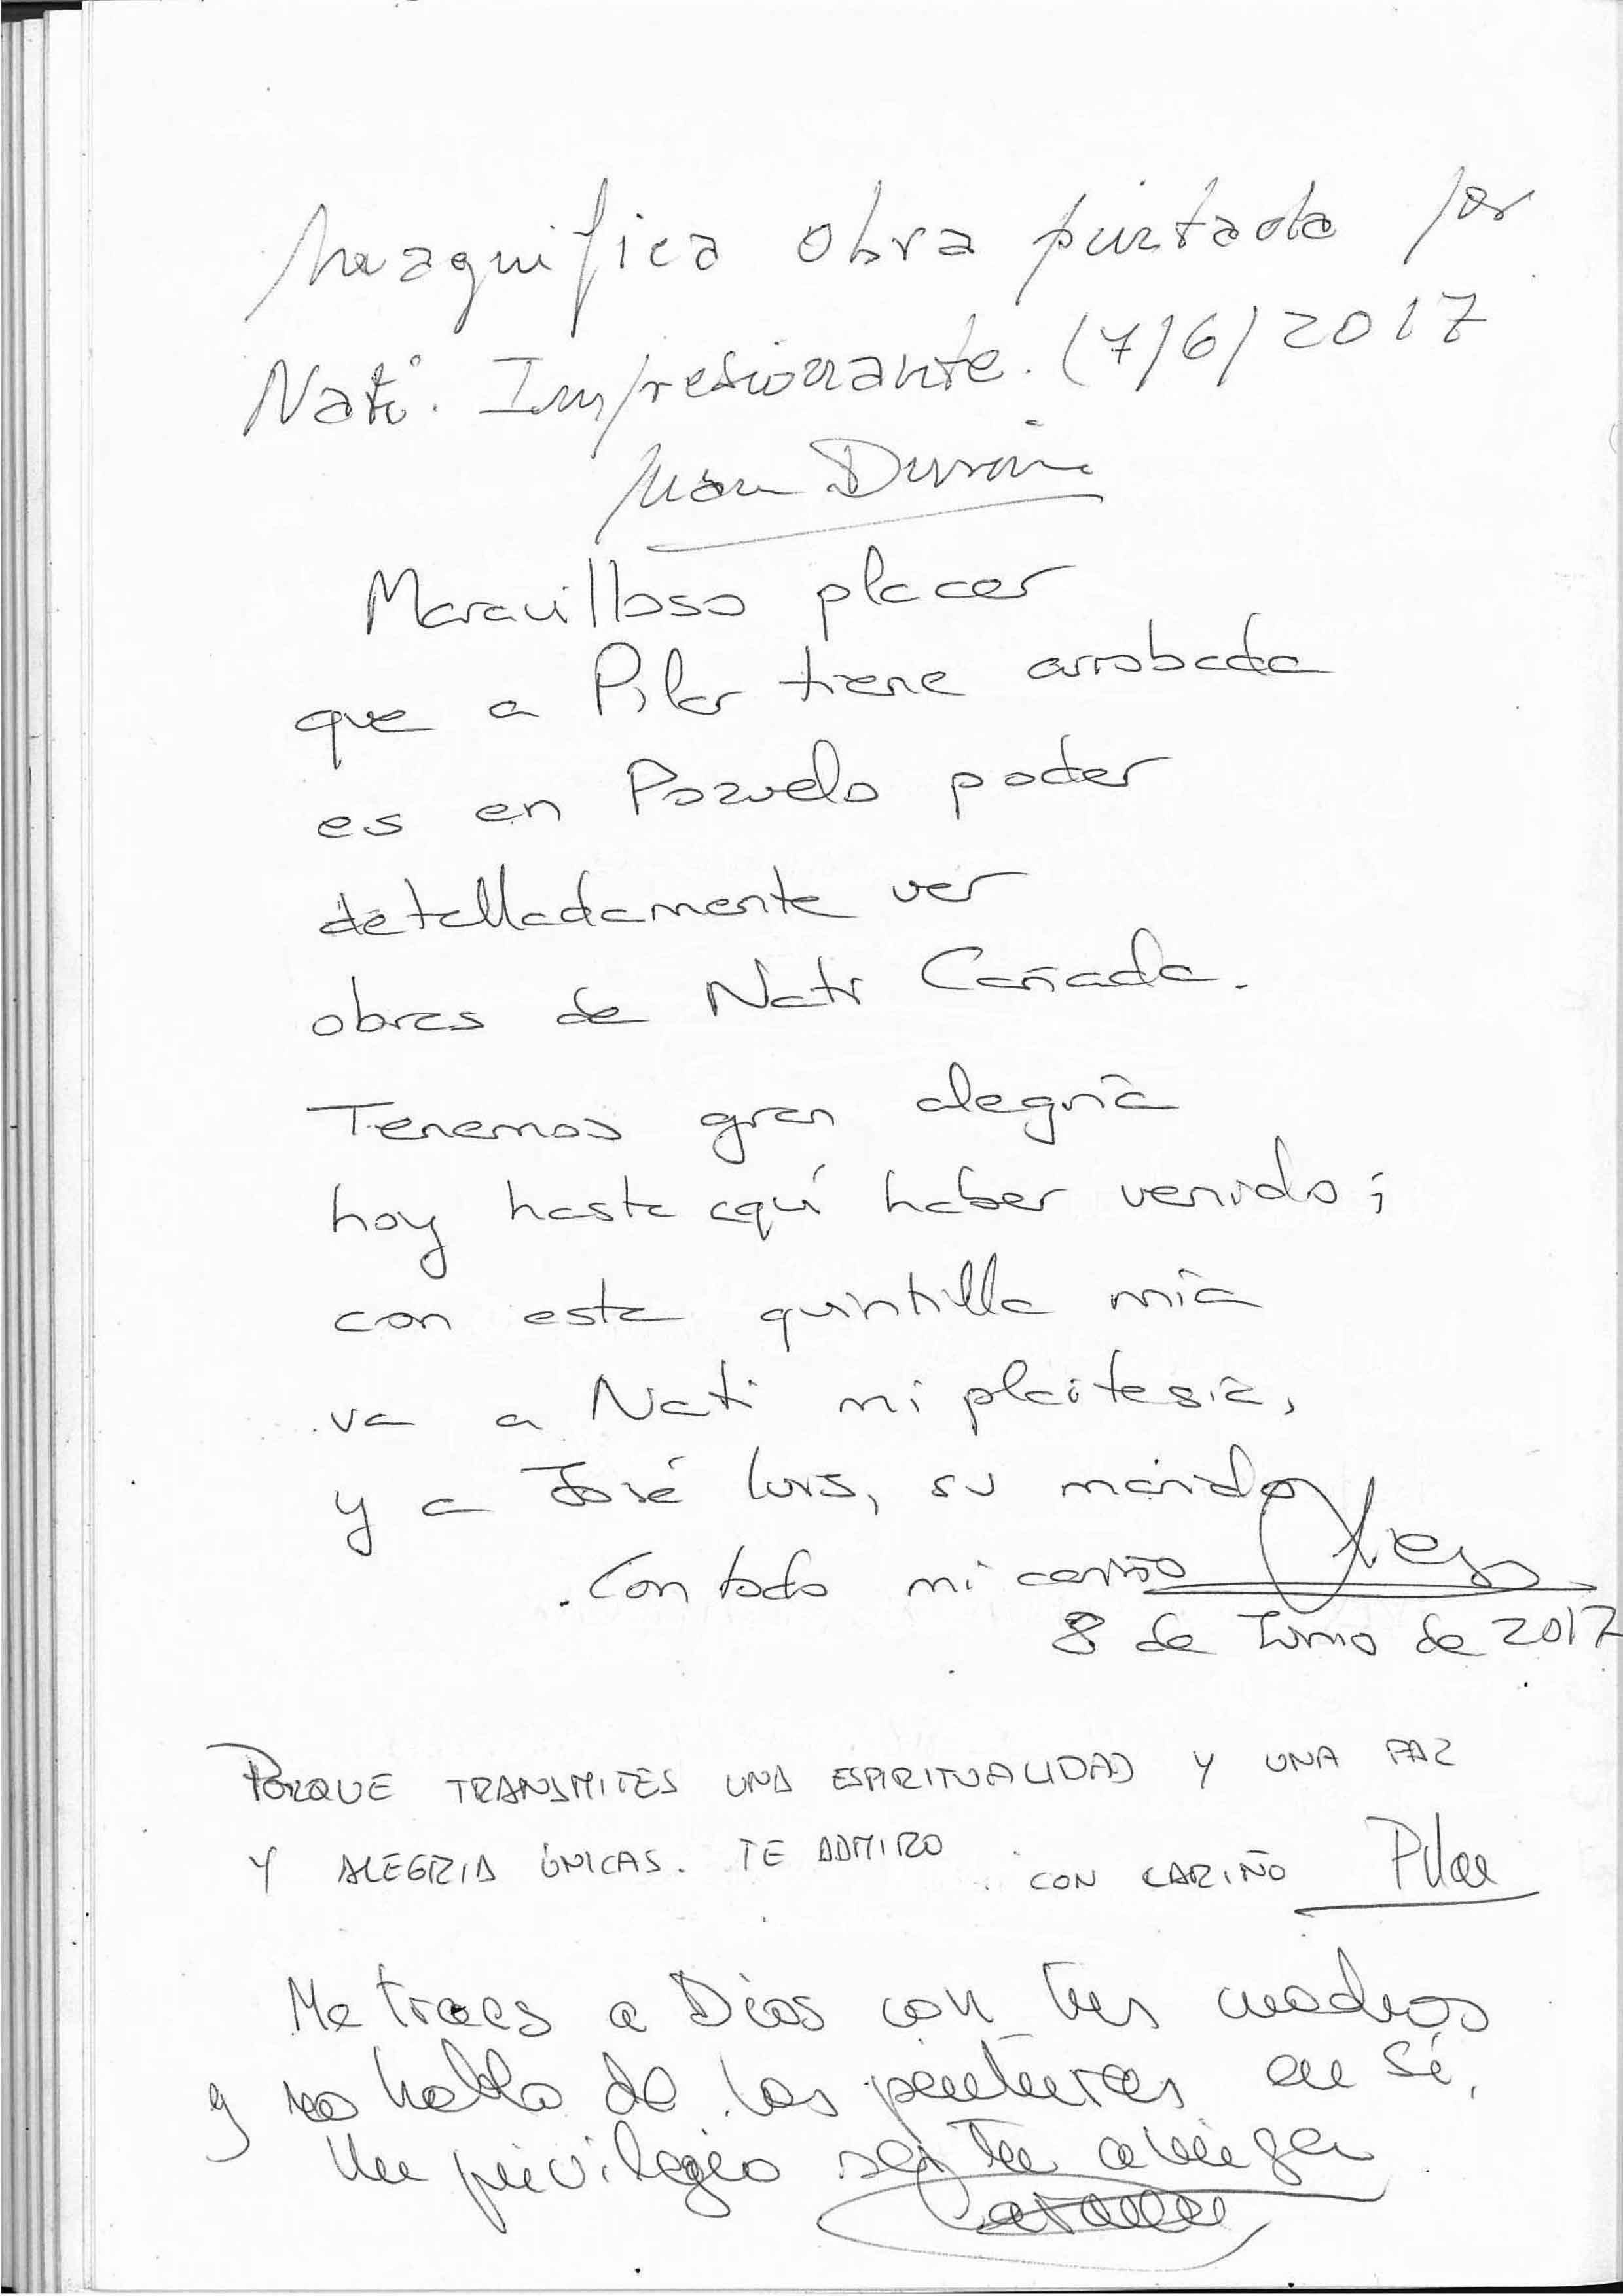 Magnifica obra pintada por
Nati. Impresionante. (7/6/2017
Juan Durán
Maravilloso placer
que a Pilar tiene arrobada
es en Pozuelo poder
detalladamente ver
obras de Nati Cañada.
Tenemos gran alegría
hoy hasta aquí haber venido;
con esta quintilla mía
va a Nati mi pleitesía,
y a José Luis, su marido
Con todo mi cariño
8 de Junio de 2017
PORQUE TRANSMITES UNA ESPIRITUALIDAD Y UNA PAZ
Y ALEGRIA ÚNICAS. TE ADMIRO
CON CARIÑO Pilar
Me traes a Dios con tus cuadros
y no hablo de las pinturas en sí.
Un privilegio ser tu amiga